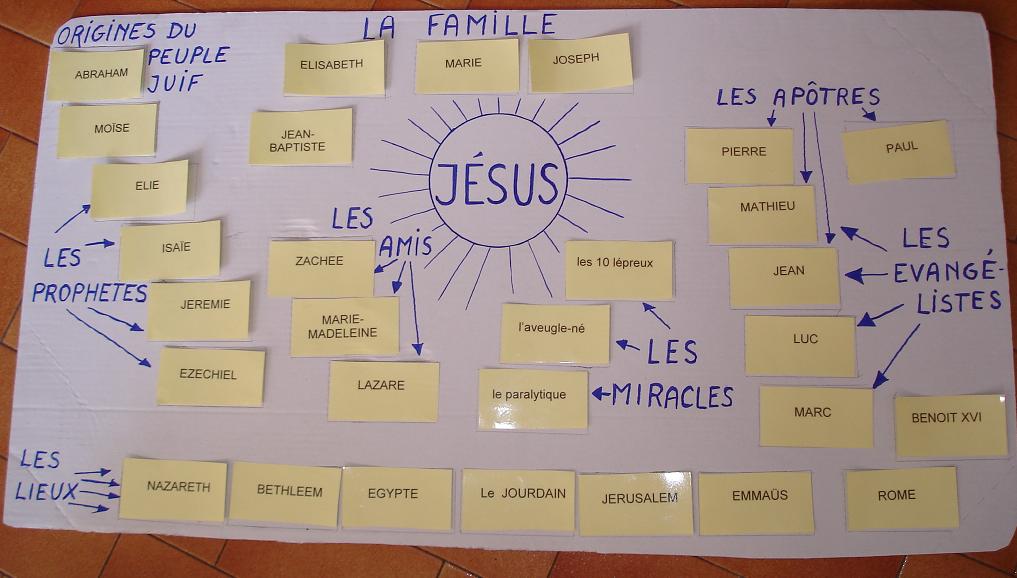 ORIGINES DU
PEUPLE
JUIF
ABRAHAM
MOÏSE
LA FAMILLE
ELISABETH
MARIE
JOSEPH
JEAN-
BAPTISTE
JÉSUS
LES APÔTRES
PIERRE
PAUL
MATHIEU
JEAN
LUC
MARC
LES
EVANGÉ-
LISTES
BENOIT XVI
ELIE
ISAÏE
JEREMIE
EZECHIEL
LES
PROPHETES
LES
AMIS
ZACHEE
MARIE-
MADELEINE
LAZARE
les 10 lépreux
l'aveugle-né
le paralytique
LES
MIRACLES
LES
LIEUX
NAZARETH
BETHLEEM
EGYPTE
Le JOURDAIN
JERUSALEM
EMMAÜS
ROME